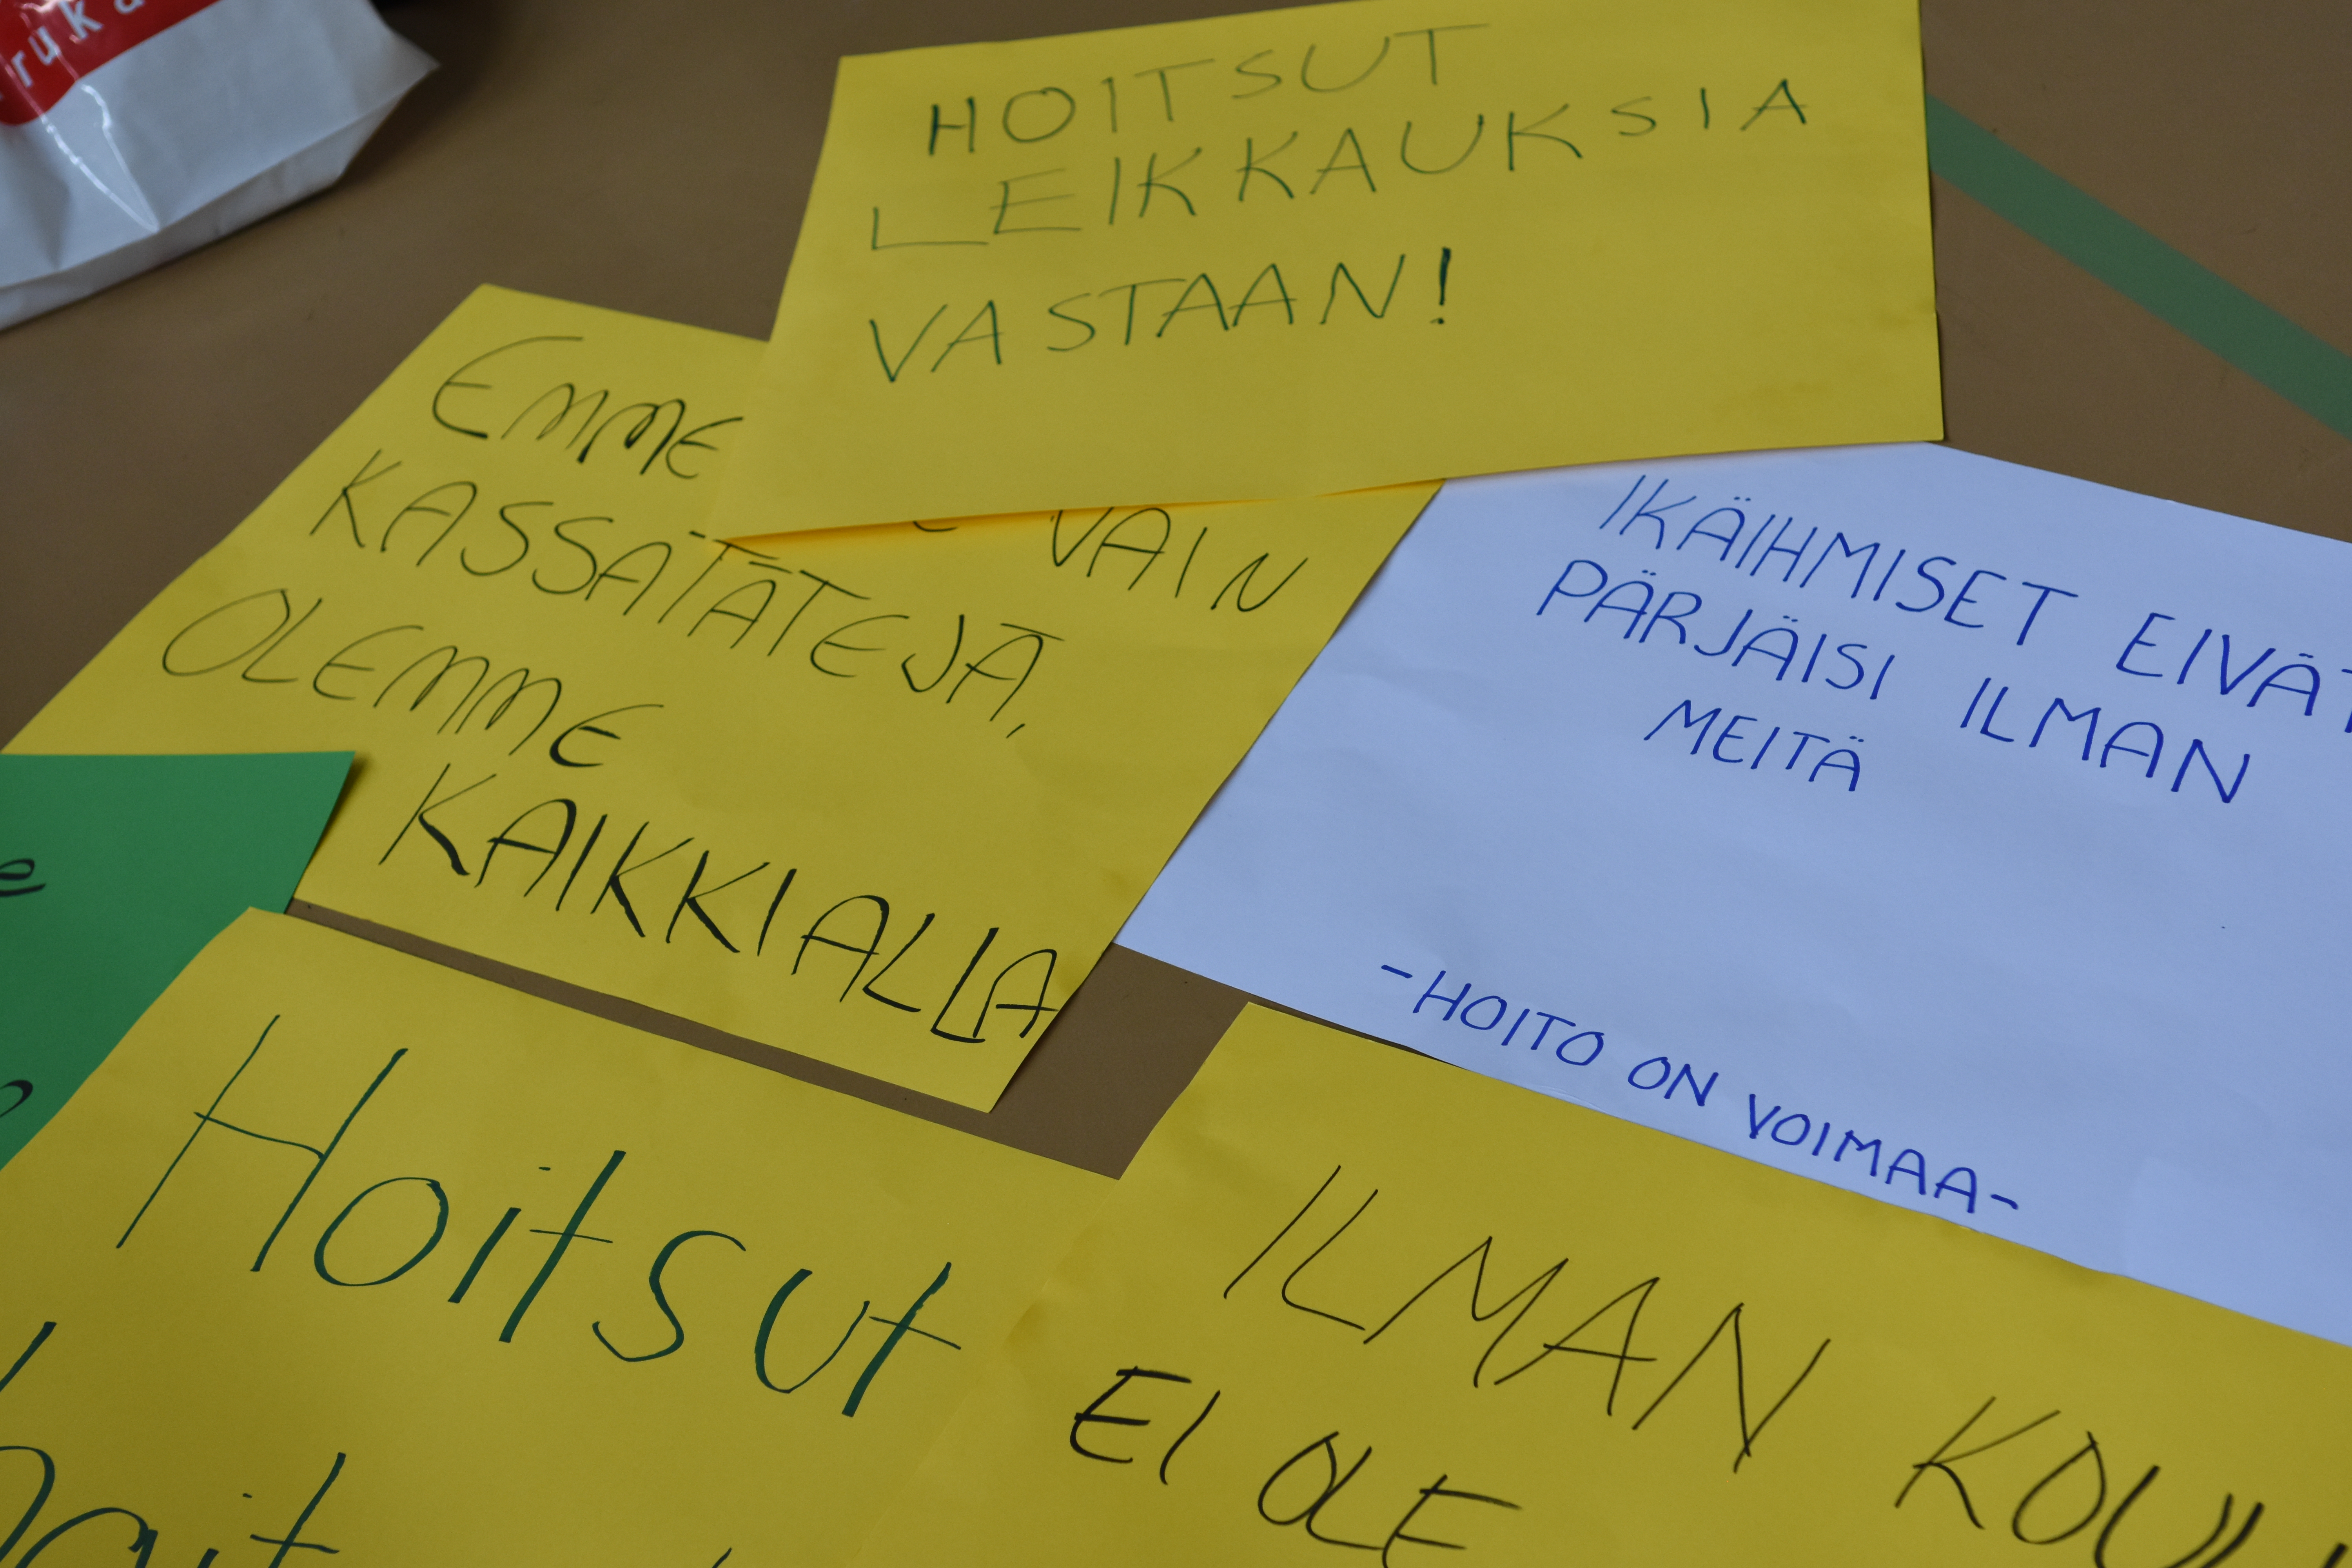 HOITSUT
LEIKKAUKSIA
VASTAAN!
EMME
VAIN
KASSATÄTEJÄ,
OLEMME
KAIKKIALLA
IKÄIHMISET EIVÄT
PÄRJÄISI ILMAN
MEITÄ
-HOITO ON VOIMAA-
Hoitsut
ILMAN
EI OLE